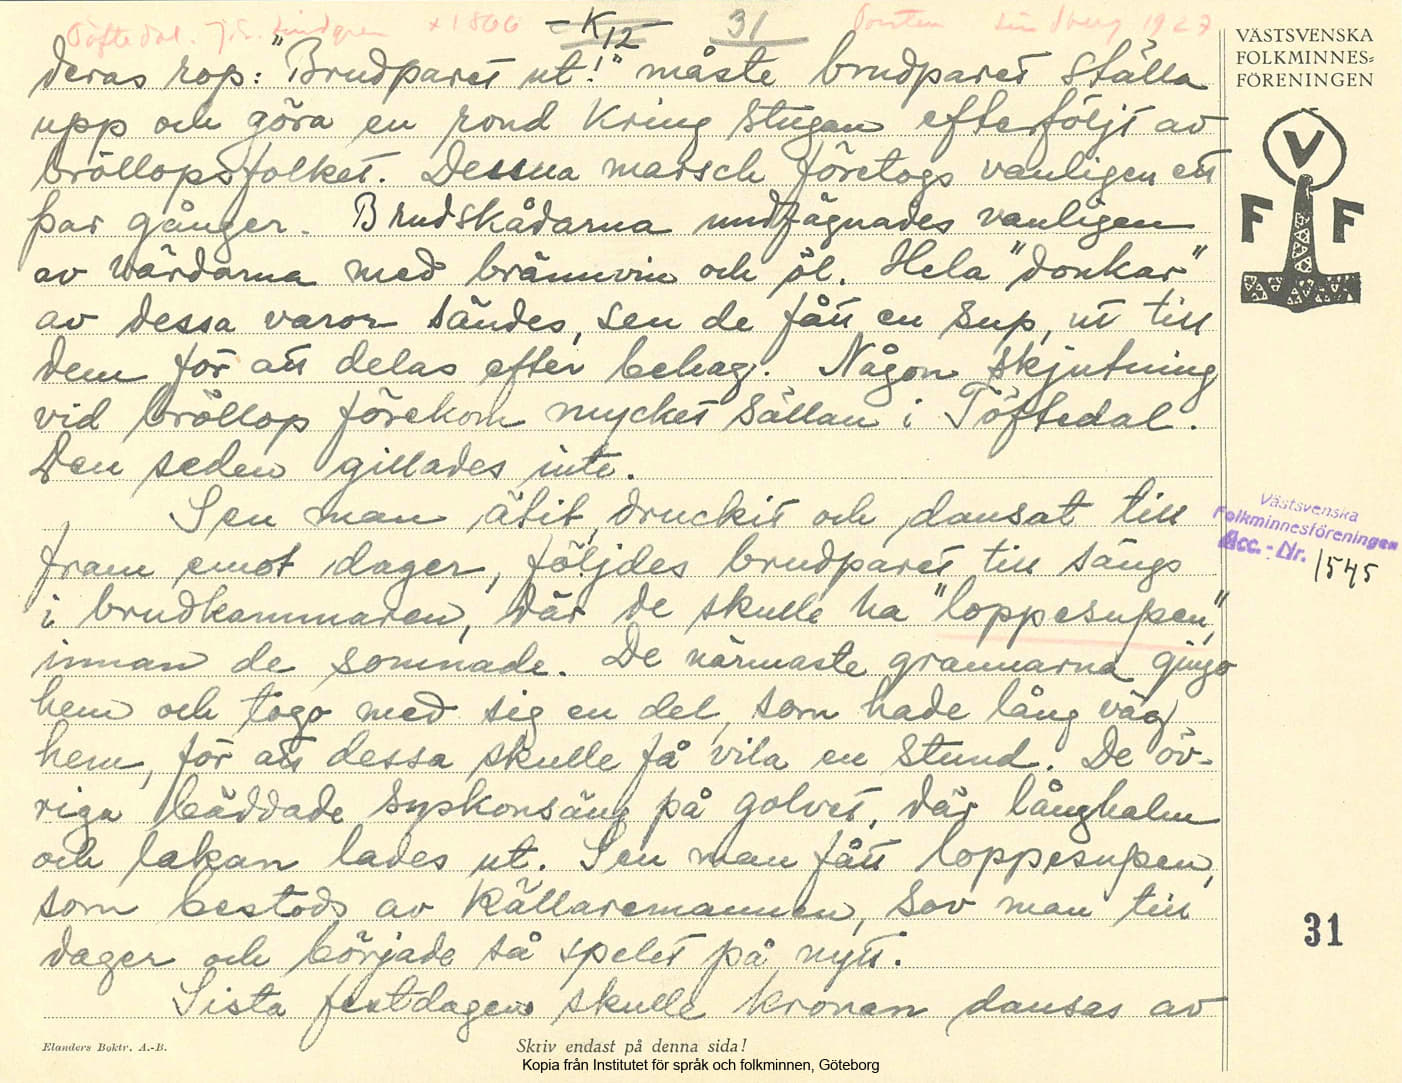 Töftedal. J.S. Lindgren *1866 K 12 31 Torsten Lindberg 1927
VÄSTSVENSKA
FOLKMINNES-
FÖRENINGEN
V
F F
deras rop: "Brudparet ut!" måste brudparet ställa
upp och göra en rond kring stugan efterföljt av
bröllopsfolket. Dessna marsch företogs vanligen ett
par gånger. Brudskådarna undfägnades vanligen
av värdarna med brännvin och öl. Hela "donkar"
av dessa varor sändes, sen de fått en sup, ut till
dem för att delas efter behag. Någon skjutning
vid bröllop förekom mycket sällan i Töftedal.
Den seden gillades inte.
Sen man ätit, druckit och dansat till
fram emot dager, följdes brudparet till sängs
i brudkammaren, där de skulle ha "loppesupen",
innan de somnade. De närmaste grannarna gingo
hem och togo med sig en del, som hade lång väg
hem, för att dessa skulle få vila en stund. De öv-
riga bäddade syskonsäng på golvet, där långhalm
och lakan lades ut. Sen man fått loppesupen,
som bestods av källaremannen, sov man till
dager och började så spelet på nytt.
Sista festdagen skulle kronan dansas av
Västsvenska
Folkminnesföreningen
Acc.-Nr. 1545
31
Elanders Boktr. A.-B.
Skriv endast på denna sida!
Kopia från Institutet för språk och folkminnen, Göteborg